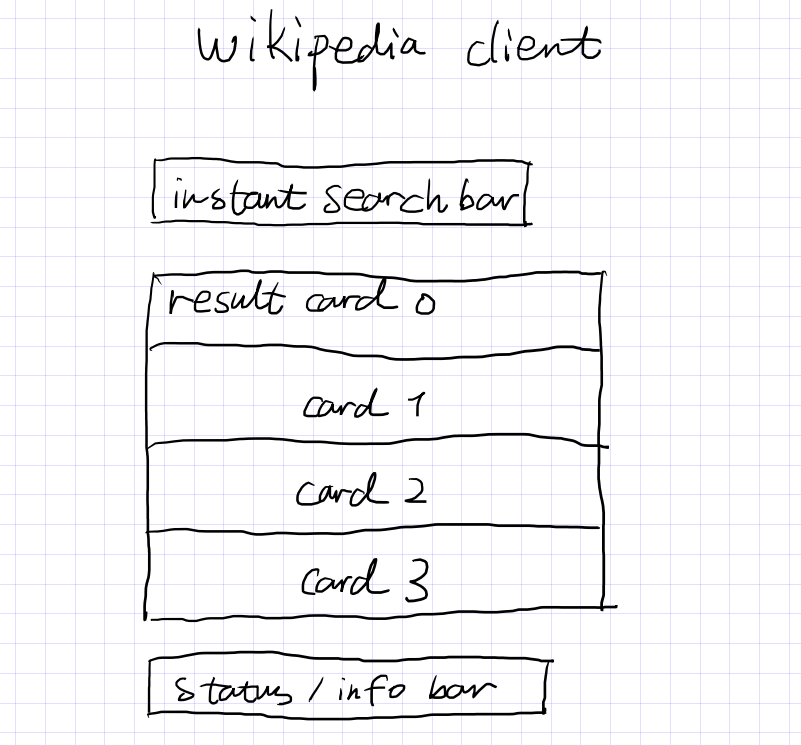 Wikipedia client
instant search bar
result card 0
card 1
card 2
card 3
status / info bar